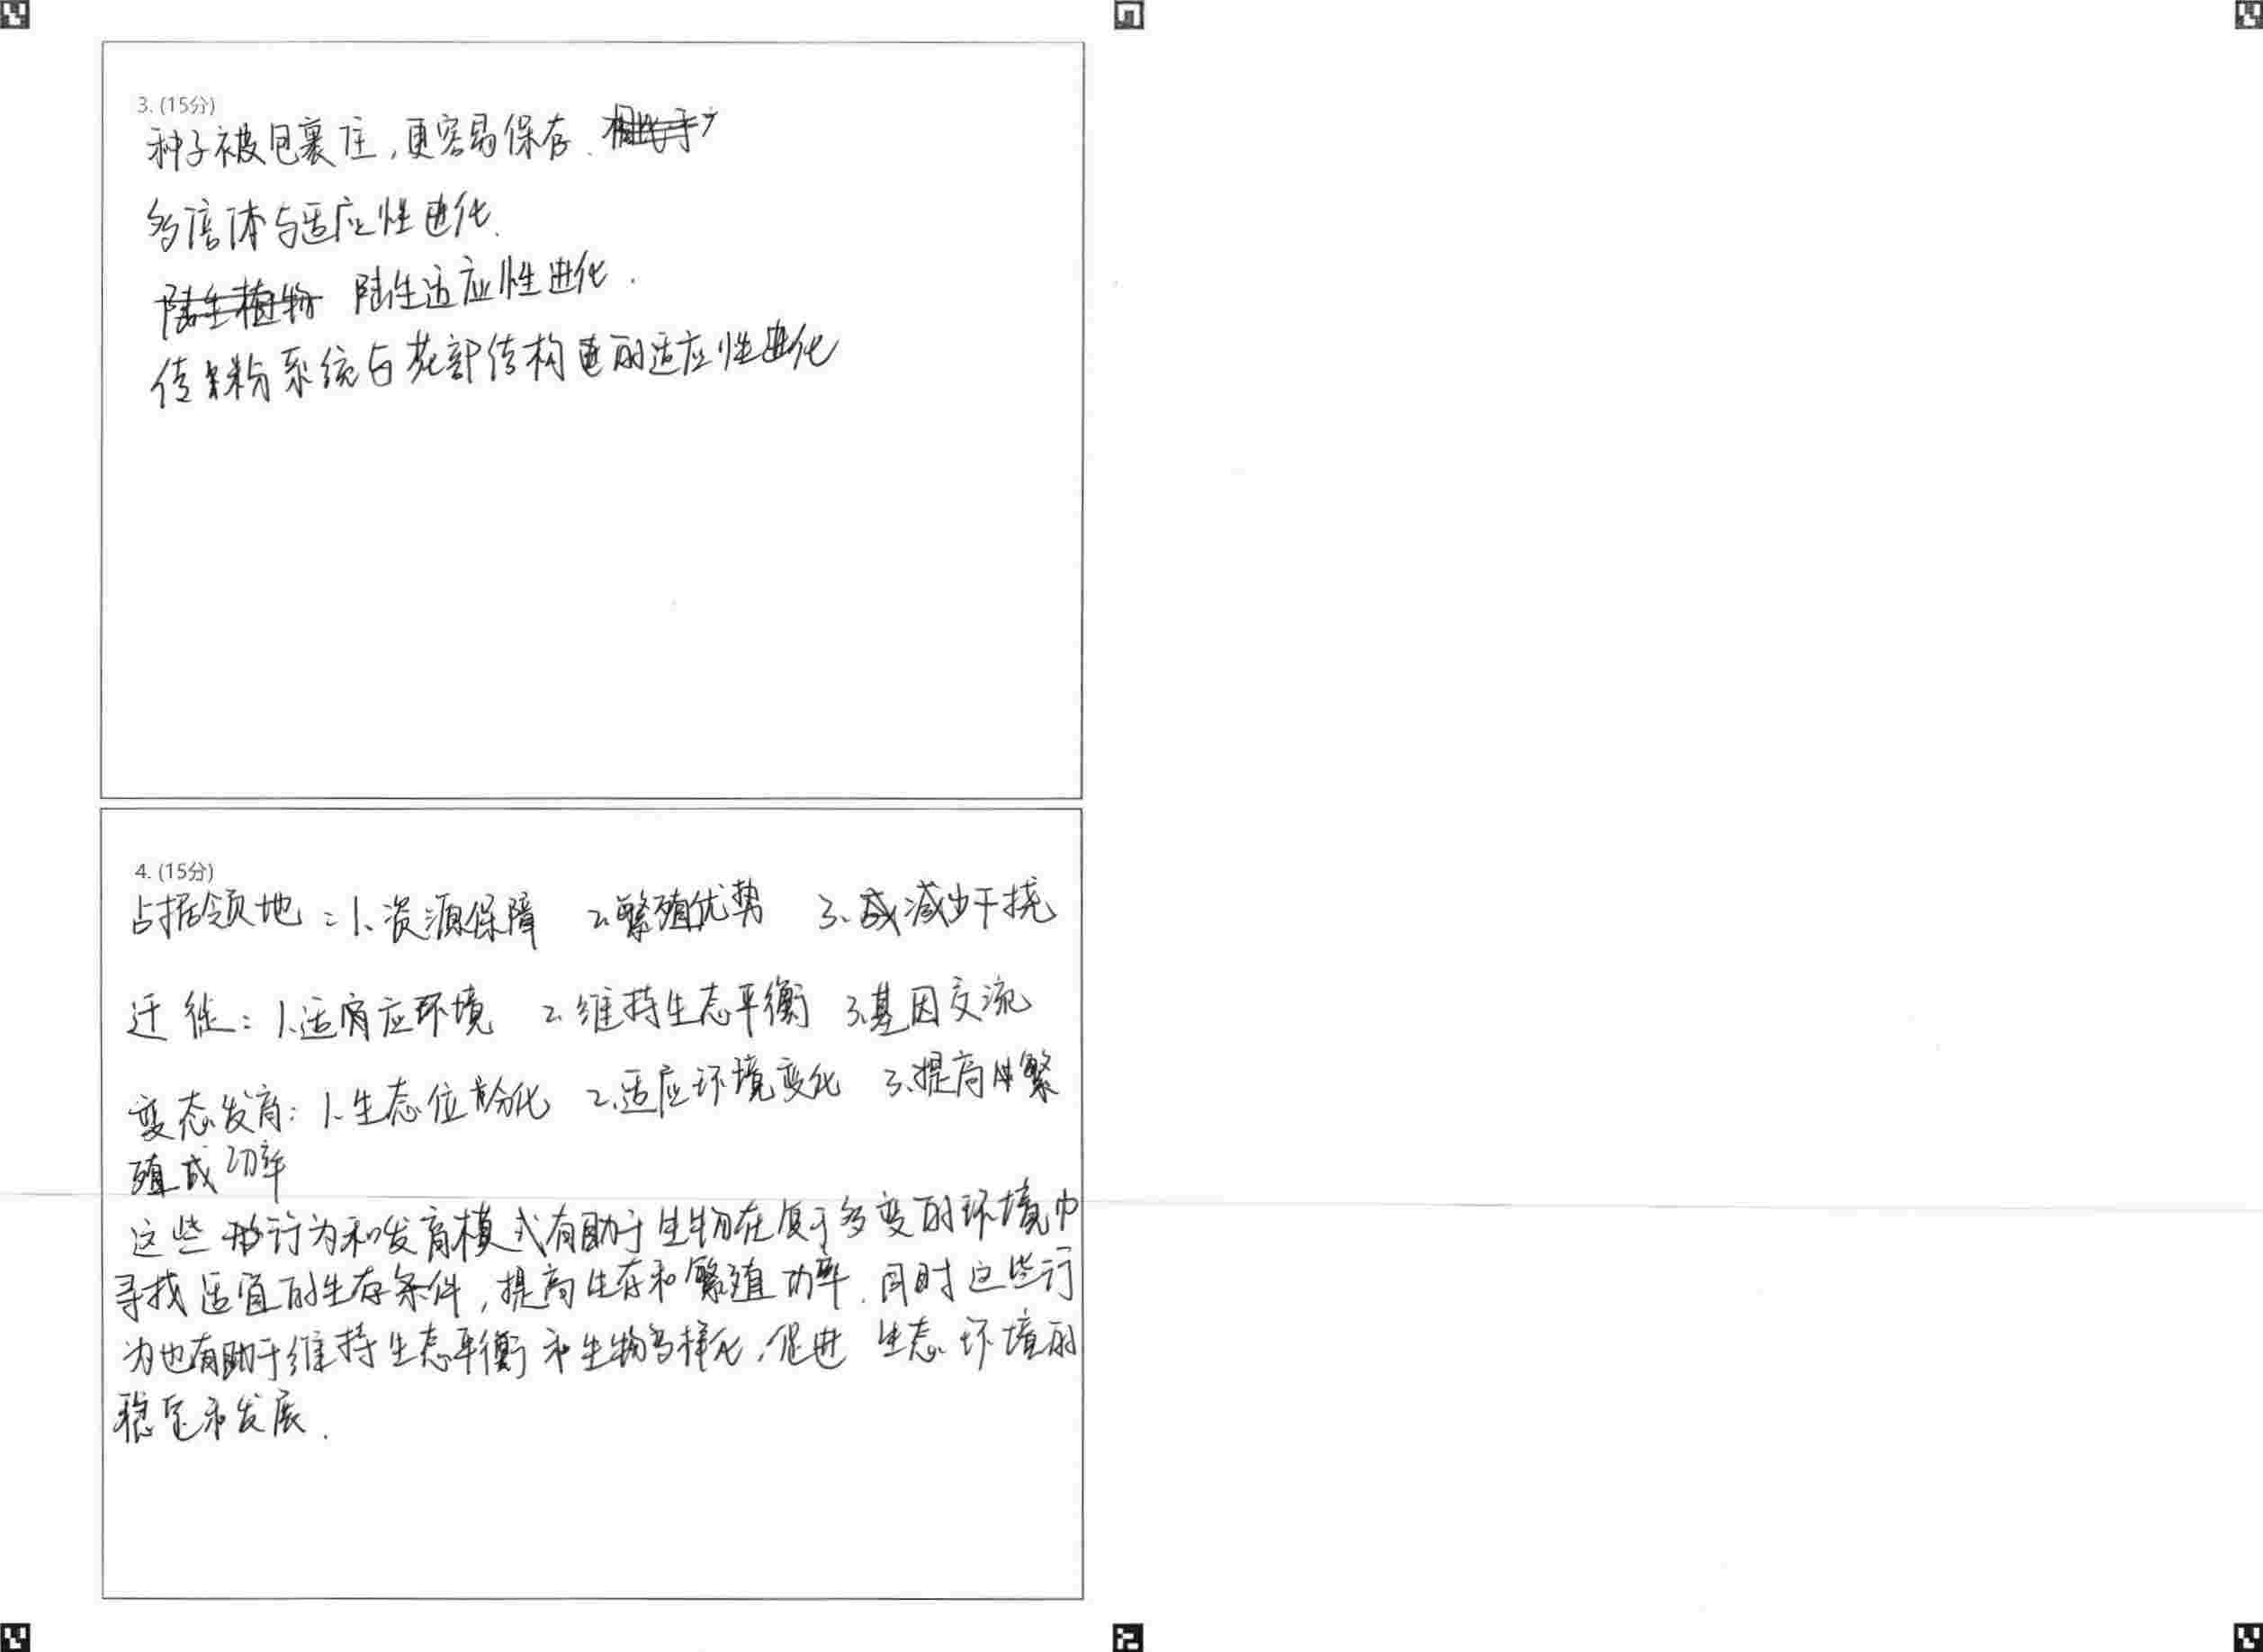 3. (15分)
种子被包裹住,更容易保存.
多倍体与适应性进化.
陆生植物 陆生适应性进化.
传粉系统与花部传构的适应性进化
4. (15分)
占据领地:1、资源保障 2.繁殖优势 3、减少干挠
迁徙:1.适应环境 2.维持生态平衡 3.基因交流
变态发育:1.生态位分化 2.适应环境变化 3.提高繁
殖成功率
这些行为和发育模式有助于生物在复于多变的环境中
寻找适宜的生存条件,提高生存和繁殖功率.同时这些行
为也有助于维持生态平衡和生物多样化,促进 生态环境的
稳定和发展.